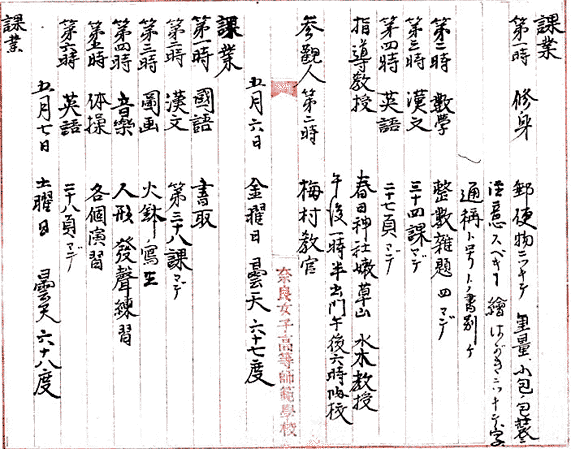 課業
第一時 修身 郵便物ニツキテ 重量、小包、包装
注意スベキコト 繪はがき二八十二字
通称ト号トノ書別ケ
第二時 數学 整數雜題 四マデ
第三時 漢文 三十四課マデ
第四時 英語 二十七頁マデ
指導教授 春日神社嫩草山 水木教授
午後一時半出門午後六時帰校
参觀人 第二時 梅村教官
奈良女子高等師範學校
五月六日 金曜日 曇天 六十七度
課業
第一時 國語 書取
第二時 漢文 第三十八課マデ
第三時 圖画 火鉢ノ寫生
第四時 音樂 人形 發聲練習
第五時 体操 各個演習
第六時 英語 二十八頁マデ
五月七日 土曜日 曇天 六十八度
課業